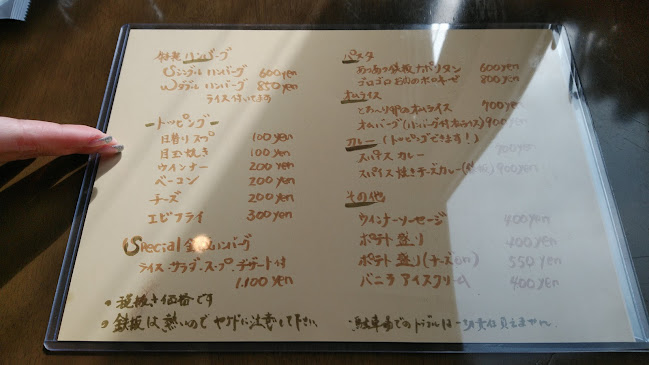 鉄板 ハンバーグ
Sシングル ハンバーグ 600yen
Wダブル ハンバーグ 850yen
ライス付いてます
ートッピングー
日替り スープ 100yen
目玉焼き 100yen
ウインナー 200yen
ベーコン 200yen
チーズ 200yen
エビフライ 300yen
Special 鉄板ハンバーグ
ライス・サラダ・スープ・デザート付
1.100yen
・税抜き価格です
・鉄板は熱いので ヤケドに注意して下さい
パスタ
あつあつ鉄板ナポリタン 600yen
ゴロゴロお肉のボロネーゼ 800yen
オムライス
とろ〜り卵のオムライス 700yen
オムバーグ(ハンバーグ付オムライス) 900yen
カレー (トッピングできます!)
スパイス カレー 700yen
スパイス 焼きチーズカレー 900yen
その他
ウインナーソーセージ 400yen
ポテト盛り 400yen
ポテト盛り(チーズon) 550yen
バニラ アイスクリーム 400yen
・駐車場での トラブルは一切責任負えません